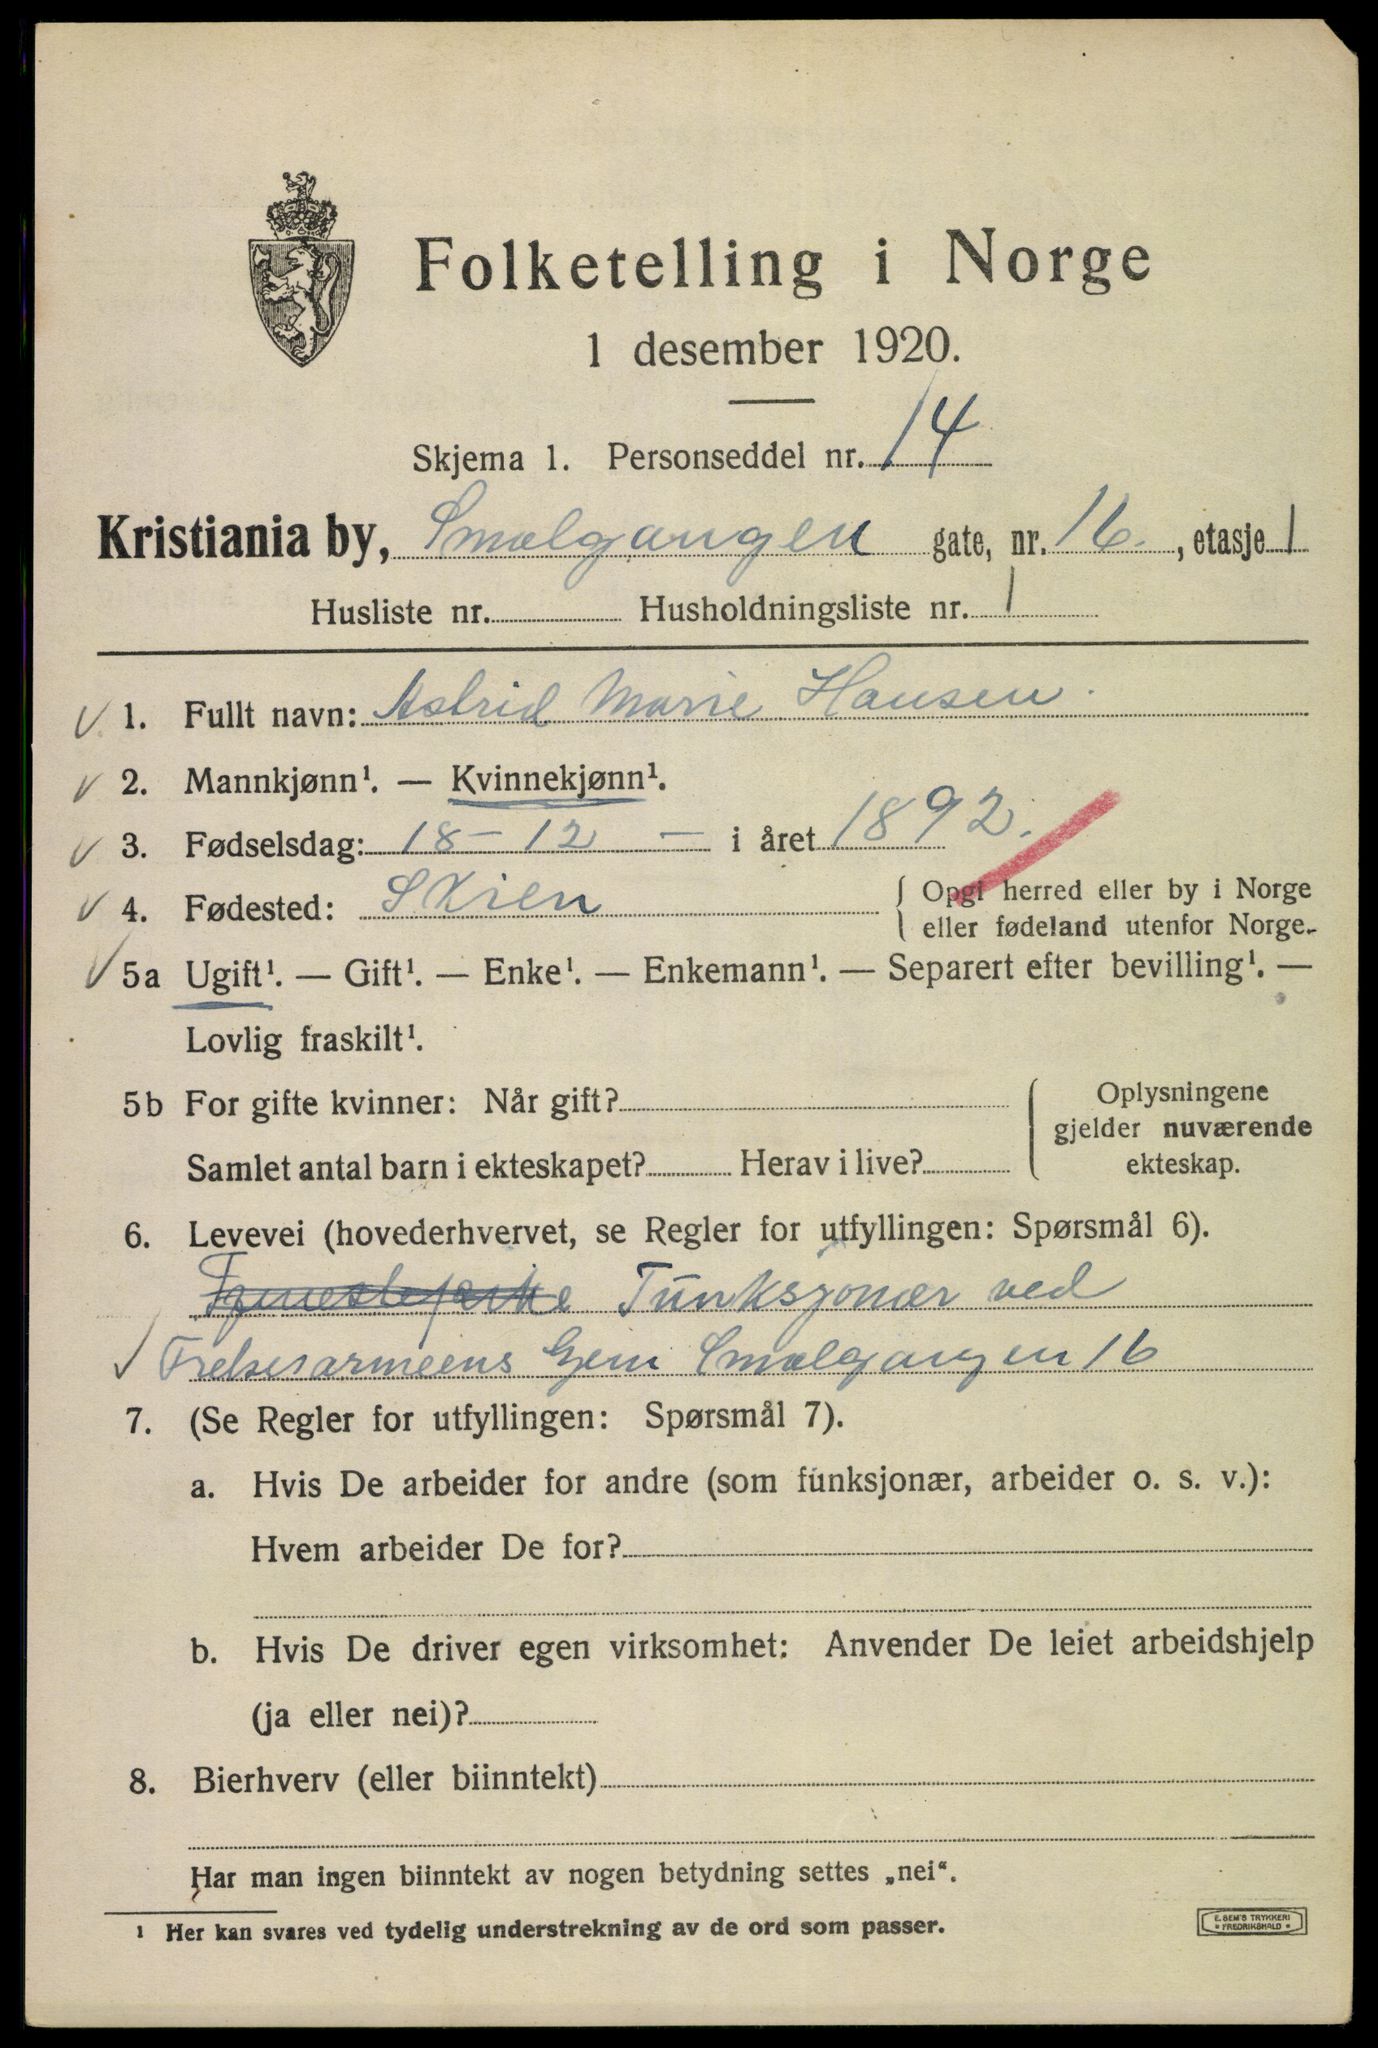 Folketelling i Norge
1 desember 1920.
Skjema 1. Personseddel nr. 14
Kristiania by, Smalgangen gate, nr. 16., etasje 1
Husliste nr. Husholdningsliste nr. 1
1. Fullt navn: Astrid Marie Hansen.
2. Mannkjønn¹. — Kvinnekjønn¹.
3. Fødselsdag: 18 – 12 — i året 1892.
4. Fødested: Skien { Opgi herred eller by i Norge
{ eller fødeland utenfor Norge.
5a Ugift¹. — Gift¹. — Enke¹. — Enkemann¹. — Separert efter bevilling¹. —
Lovlig fraskilt¹.
5b For gifte kvinner: Når gift? { Oplysningene
gjelder nuværende
Samlet antal barn i ekteskapet? Herav i live? ekteskap.
6. Levevei (hovederhvervet, se Regler for utfyllingen: Spørsmål 6).
Funksjonær ved
Frelsesarmeens Hjem Smalgangen 16
7. (Se Regler for utfyllingen: Spørsmål 7).
a. Hvis De arbeider for andre (som funksjonær, arbeider o. s. v.):
Hvem arbeider De for?
b. Hvis De driver egen virksomhet: Anvender De leiet arbeidshjelp
(ja eller nei)?
8. Bierhverv (eller biinntekt)
Har man ingen biinntekt av nogen betydning settes „nei“.
¹ Her kan svares ved tydelig understrekning av de ord som passer.
E. SEM'S TRYKKERI
* FREDRIKSHALD *